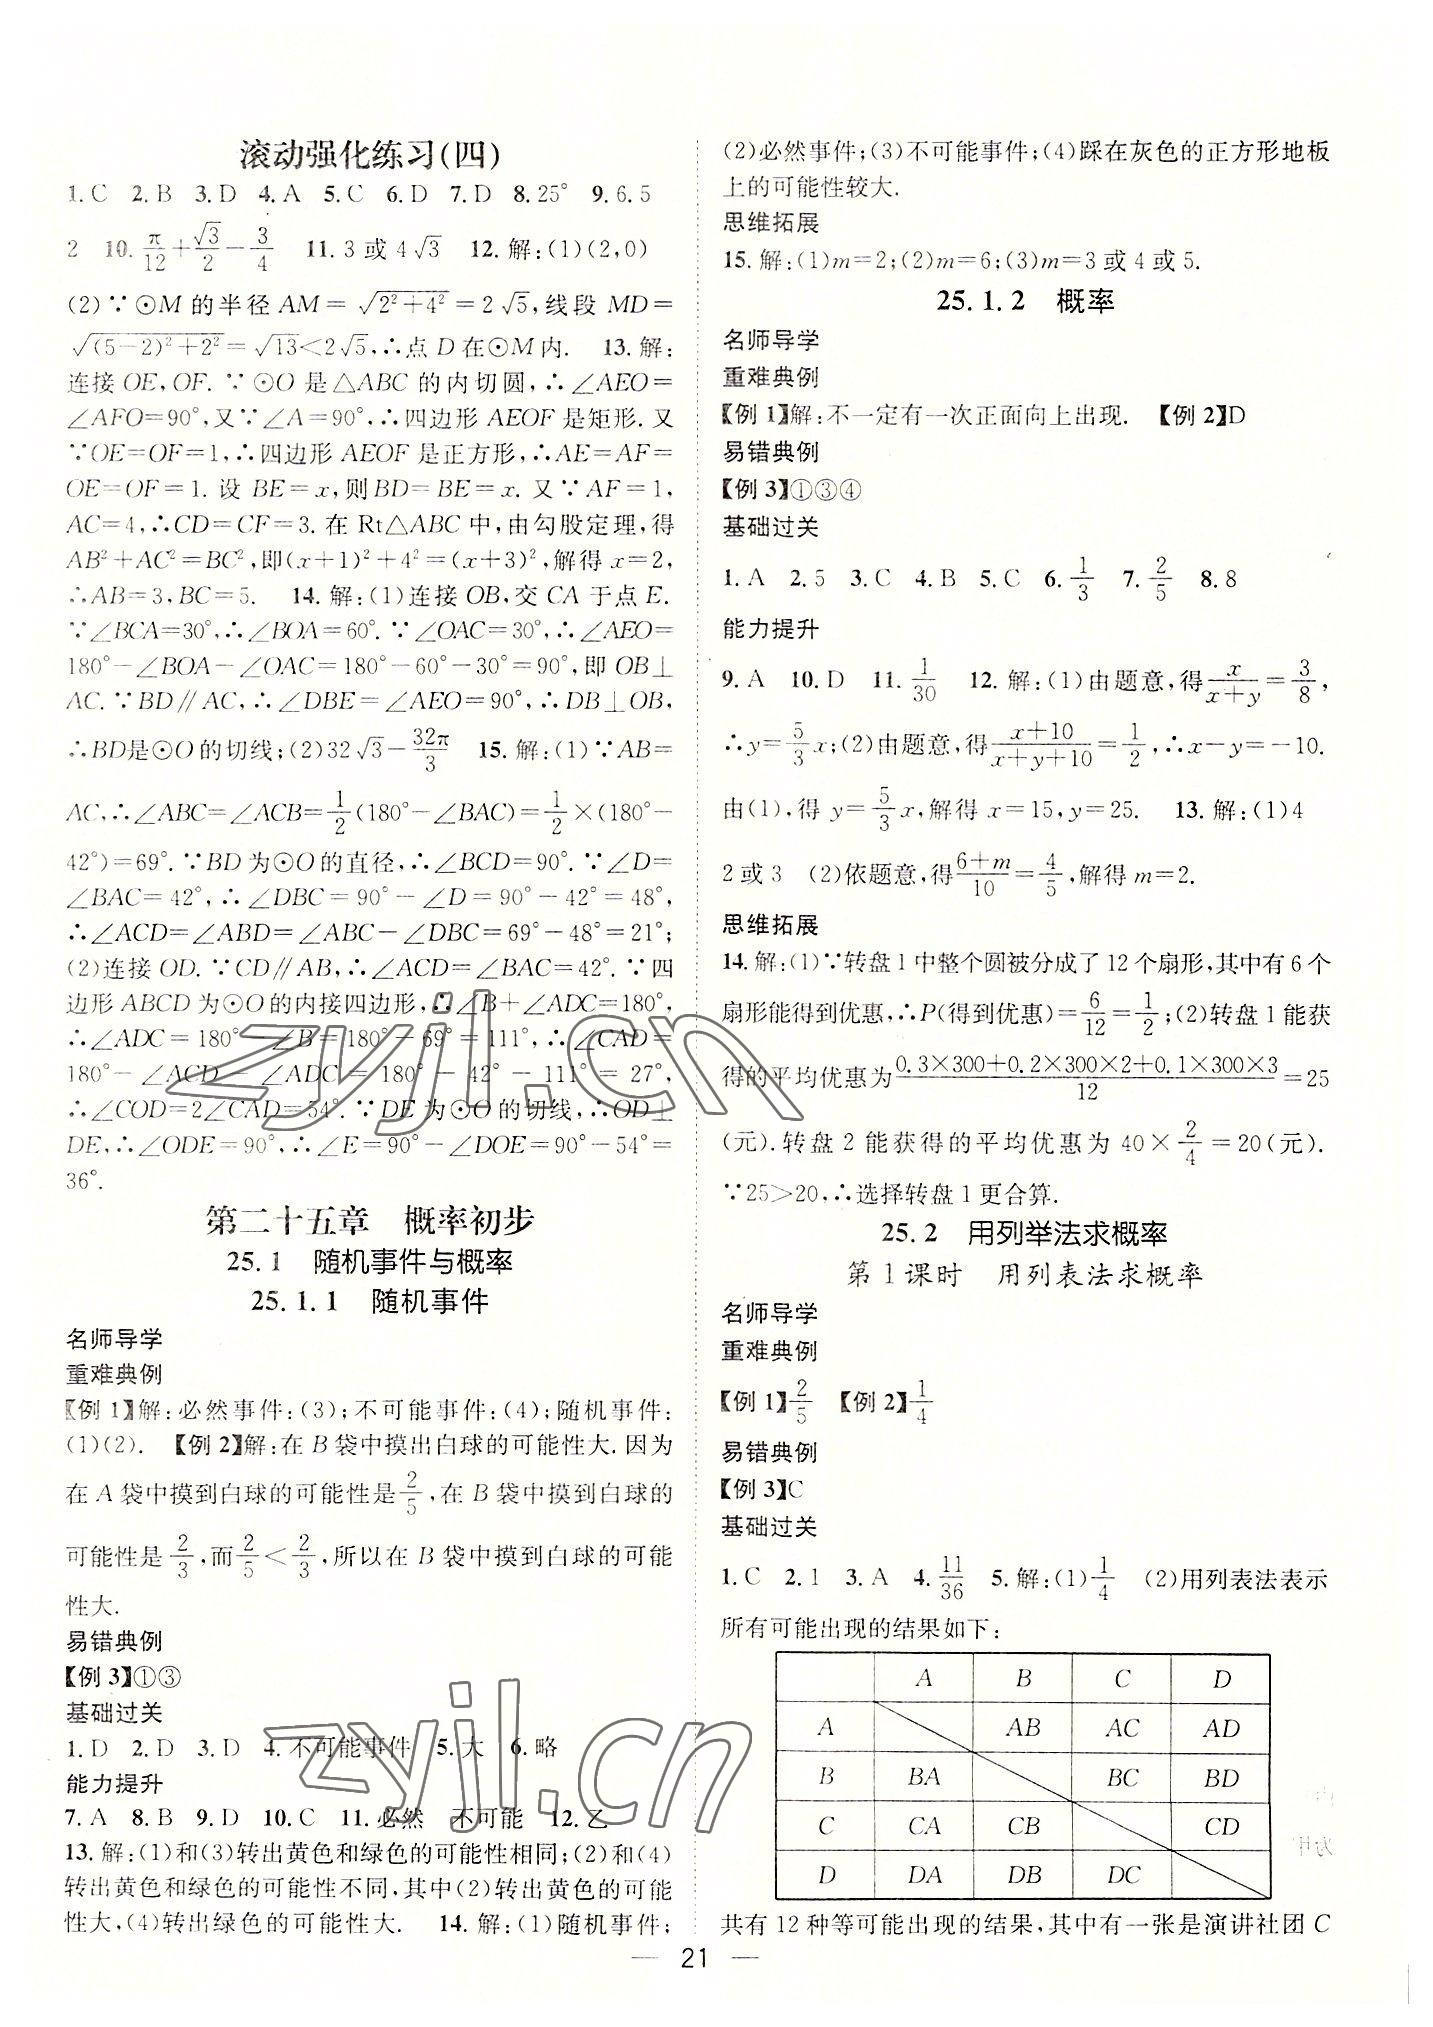 滚动强化练习(四)
1.C 2.B 3.D 4.A 5.C 6.D 7.D 8.25° 9.6.5
2 10.π/12+√3/2−3/4 11.3 或 4√3 12.解:(1)(2,0)
(2)∵⊙M 的半径 AM=√(2²+4²)=2√5,线段 MD=
√((5−2)²+2²)=√13<2√5,∴点 D 在⊙M 内. 13.解:
连接 OE,OF.∵⊙O 是△ABC 的内切圆,∴∠AEO=
∠AFO=90°,又∵∠A=90°,∴四边形 AEOF 是矩形.又
∵OE=OF=1,∴四边形 AEOF 是正方形,∴AE=AF=
OE=OF=1.设 BE=x,则BD=BE=x.又∵AF=1,
AC=4,∴CD=CF=3.在 Rt△ABC 中,由勾股定理,得
AB²+AC²=BC²,即(x+1)²+4²=(x+3)²,解得 x=2,
∴AB=3,BC=5. 14.解:(1)连接 OB,交 CA 于点 E.
∵∠BCA=30°,∴∠BOA=60°.∵∠OAC=30°,∴∠AEO=
180°−∠BOA−∠OAC=180°−60°−30°=90°,即 OB⊥
AC.∵BD∥AC,∴∠DBE=∠AEO=90°,∴DB⊥OB,
∴BD是⊙O的切线;(2)32√3−32π/3 15.解:(1)∵AB=
AC,∴∠ABC=∠ACB=1/2(180°−∠BAC)=1/2×(180°−
42°)=69°.∵BD为⊙O的直径,∴∠BCD=90°.∵∠D=
∠BAC=42°,∴∠DBC=90°−∠D=90°−42°=48°,
∴∠ACD=∠ABD=∠ABC−∠DBC=69°−48°=21°;
(2)连接 OD.∵CD∥AB,∴∠ACD=∠BAC=42°.∵四
边形 ABCD 为⊙O的内接四边形,∴∠B+∠ADC=180°,
∴∠ADC=180°−∠B=180°−69°=111°,∴∠CAD=
180°−∠ACD−∠ADC=180°−42°−111°=27°,
∴∠COD=2∠CAD=54°.∵DE 为⊙O 的切线,∴OD⊥
DE,∴∠ODE=90°,∴∠E=90°−∠DOE=90°−54°=
36°.
第二十五章 概率初步
25.1 随机事件与概率
25.1.1 随机事件
名师导学
重难典例
【例1】解:必然事件:(3);不可能事件:(4);随机事件:
(1)(2). 【例2】解:在 B 袋中摸出白球的可能性大.因为
在 A 袋中摸到白球的可能性是2/5,在 B 袋中摸到白球的
可能性是2/3,而2/5<2/3,所以在 B 袋中摸到白球的可能
性大.
易错典例
【例3】①③
基础过关
1.D 2.D 3.D 4.不可能事件 5.大 6.略
能力提升
7.A 8.B 9.D 10.C 11.必然 不可能 12.乙
13.解:(1)和(3)转出黄色和绿色的可能性相同;(2)和(4)
转出黄色和绿色的可能性不同,其中(2)转出黄色的可能
性大,(4)转出绿色的可能性大. 14.解:(1)随机事件;
(2)必然事件;(3)不可能事件;(4)踩在灰色的正方形地板
上的可能性较大.
思维拓展
15.解:(1)m=2;(2)m=6;(3)m=3或4或5.
25.1.2 概率
名师导学
重难典例
【例1】解:不一定有一次正面向上出现. 【例2】D
易错典例
【例3】①③④
基础过关
1.A 2.5 3.C 4.B 5.C 6.1/3 7.2/5 8.8
能力提升
9.A 10.D 11.1/30 12.解:(1)由题意,得x/(x+y)=3/8,
∴y=5/3x;(2)由题意,得(x+10)/(x+y+10)=1/2,∴x−y=−10.
由(1),得 y=5/3x,解得 x=15,y=25. 13.解:(1)4
2或3 (2)依题意,得(6+m)/10=4/5,解得m=2.
思维拓展
14.解:(1)∵转盘1中整个圆被分成了12个扇形,其中有6个
扇形能得到优惠,∴P(得到优惠)=6/12=1/2;(2)转盘1能获
得的平均优惠为(0.3×300+0.2×300×2+0.1×300×3)/12=25
(元).转盘 2 能获得的平均优惠为 40×2/4=20(元).
∵25>20,∴选择转盘1更合算.
25.2 用列举法求概率
第1课时 用列表法求概率
名师导学
重难典例
【例1】2/5 【例2】1/4
易错典例
【例3】C
基础过关
1.C 2.1 3.A 4.11/36 5.解:(1)1/4 (2)用列表法表示
所有可能出现的结果如下:
A B C D
A AB AC AD
B BA BC BD
C CA CB CD
D DA DB DC
共有12种等可能出现的结果,其中有一张是演讲社团C
21
zyjl.cn
zyjl.cn